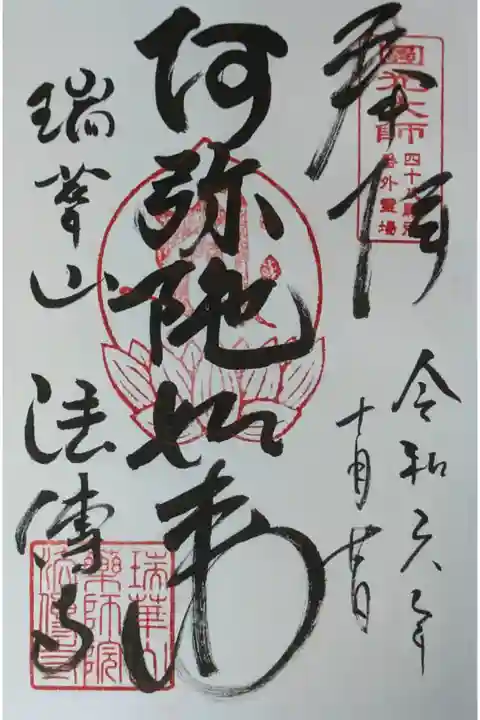 奉拝
圓光大師
四十八願所
番外霊場
令和六年
十月
阿弥陀如来
瑞華山 法傳寺
瑞華山
薬師院
法傳寺